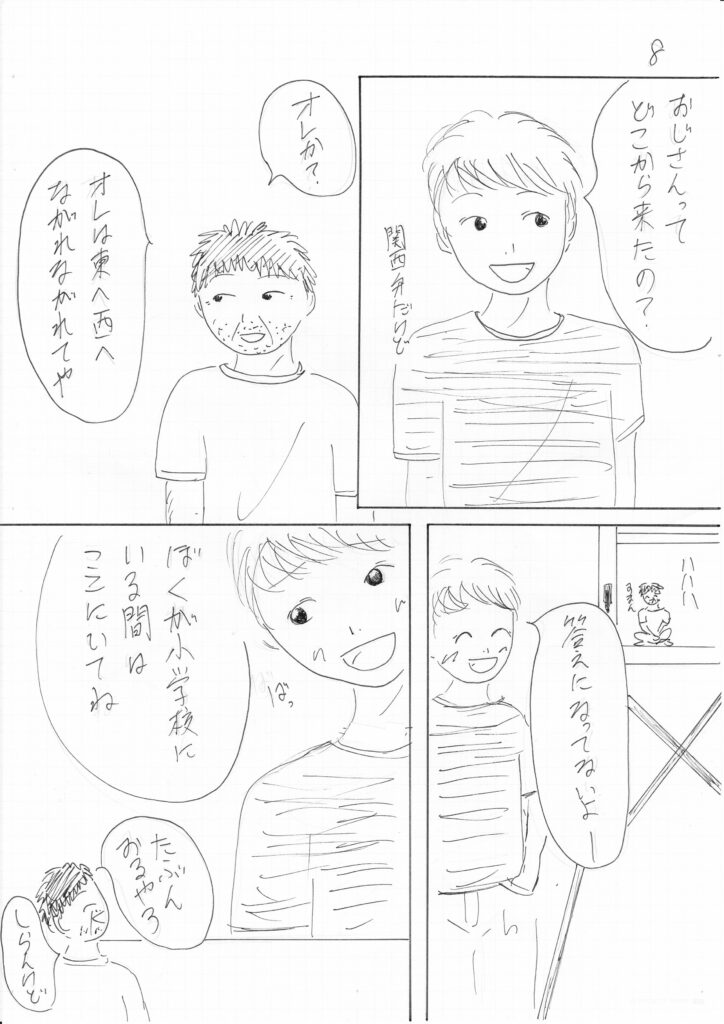 8
おじさんって
どこから来たの？
関西弁だけど
オレか？
オレは東へ西へ
ながれながれてや
ハハハ
すまん
答えになってないよー
ぼくが小学校に
いる間は
ここにいてね
ばっ
たぶん
おるやろ
しらんけど